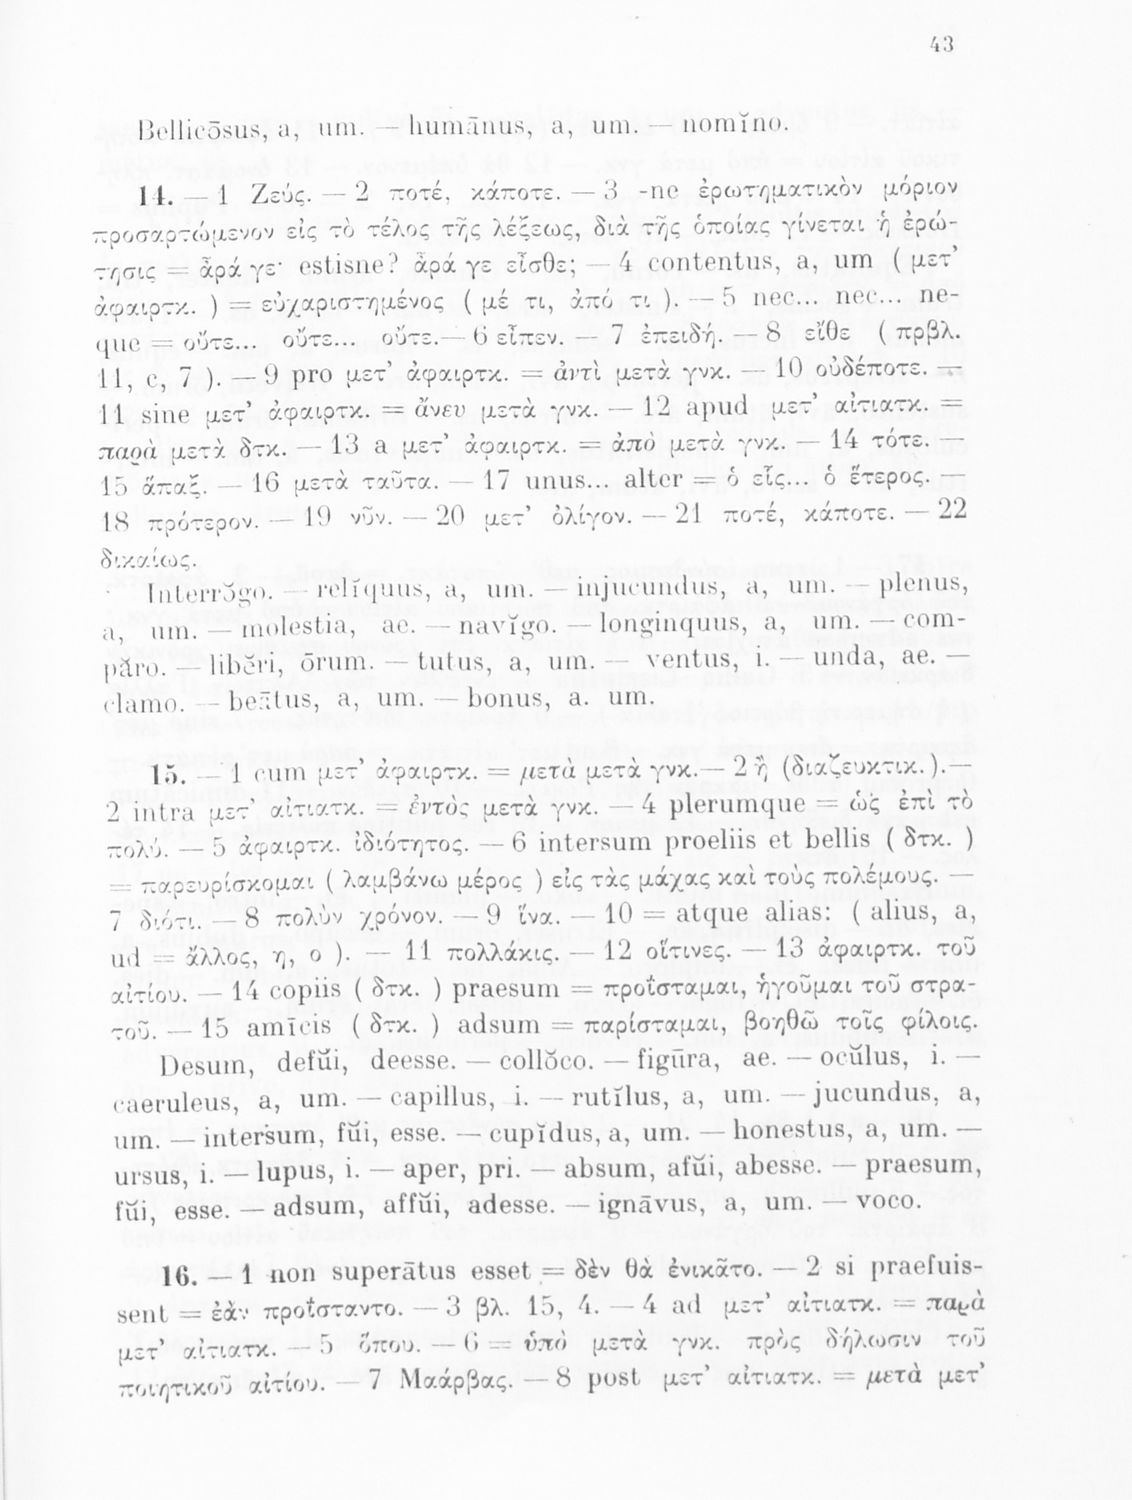 43
Bellicōsus, a, um. — humānus, a, um. — nomĭno.
14. — 1 Ζεύς. — 2 ποτέ, κάποτε. — 3 -ne ἐρωτηματικὸν μόριον
προσαρτώμενον εἰς τὸ τέλος τῆς λέξεως, διὰ τῆς ὁποίας γίνεται ἡ ἐρώ-
τησις = ἆρά γε· estisne? ἆρά γε εἶσθε; — 4 contentus, a, um ( μετ’
ἀφαιρτκ. ) = εὐχαριστημένος ( μέ τι, ἀπό τι ). — 5 nec... nec... ne-
que = οὔτε... οὔτε... οὔτε. — 6 εἶπεν. — 7 ἐπειδή. — 8 εἴθε ( πρβλ.
11, c, 7 ). — 9 pro μετ’ ἀφαιρτκ. = ἀντὶ μετὰ γνκ. — 10 οὐδέποτε. —
11 sine μετ’ ἀφαιρτκ. = ἄνευ μετὰ γνκ. — 12 apud μετ’ αἰτιατκ. =
παρὰ μετὰ δτκ. — 13 a μετ’ ἀφαιρτκ. = ἀπὸ μετὰ γνκ. — 14 τότε. —
15 ἅπαξ. — 16 μετὰ ταῦτα. — 17 unus... alter = ὁ εἷς... ὁ ἕτερος. —
18 πρότερον. — 19 νῦν. — 20 μετ’ ὀλίγον. — 21 ποτέ, κάποτε. — 22
δικαίως.
Interrŏgo. — relĭquus, a, um. — injucundus, a, um. — plenus,
a, um. — molestia, ae. — navĭgo. — longinquus, a, um. — com-
păro. — libĕri, ōrum. — tutus, a, um. — ventus, i. — unda, ae. —
clamo. — beātus, a, um. — bonus, a. um.
15. — 1 cum μετ’ ἀφαιρτκ. = μετὰ μετὰ γνκ. — 2 ἢ (διαζευκτικ.). —
2 intra μετ’ αἰτιατκ. = ἐντὸς μετὰ γνκ. — 4 plerumque = ὡς ἐπὶ τὸ
πολύ. — 5 ἀφαιρτκ. ἰδιότητος. — 6 intersum proeliis et bellis ( δτκ. )
= παρευρίσκομαι ( λαμβάνω μέρος ) εἰς τὰς μάχας καὶ τοὺς πολέμους. —
7 διότι. — 8 πολὺν χρόνον. — 9 ἵνα. — 10 = atque alias: ( alius, a,
ud = ἄλλος, η, ο ). — 11 πολλάκις. — 12 οἵτινες. — 13 ἀφαιρτκ. τοῦ
αἰτίου. — 14 copiis ( δτκ. ) praesum = προΐσταμαι, ἡγοῦμαι τοῦ στρα-
τοῦ. — 15 amīcis ( δτκ. ) adsum = παρίσταμαι, βοηθῶ τοῖς φίλοις.
Desum, defŭi, deesse. — collŏco. — figūra, ae. — ocŭlus, i. —
caeruleus, a, um. — capillus, i. — rutĭlus, a, um. — jucundus, a,
um. — intersum, fŭi, esse. — cupĭdus, a, um. — honestus, a, um. —
ursus, i. — lupus, i. — aper, pri. — absum, afŭi, abesse. — praesum,
fŭi, esse. — adsum, affŭi, adesse. — ignāvus, a, um. — voco.
16. — 1 non superātus esset = δὲν θὰ ἐνικᾶτο. — 2 si praefuis-
sent = ἐὰν προΐσταντο. — 3 βλ. 15, 4. — 4 ad μετ’ αἰτιατκ. = παρὰ
μετ’ αἰτιατκ. — 5 ὅπου. — 6 = ὑπὸ μετὰ γνκ. πρὸς δήλωσιν τοῦ
ποιητικοῦ αἰτίου. — 7 Μαάρβας. — 8 post μετ’ αἰτιατκ. = μετὰ μετ’